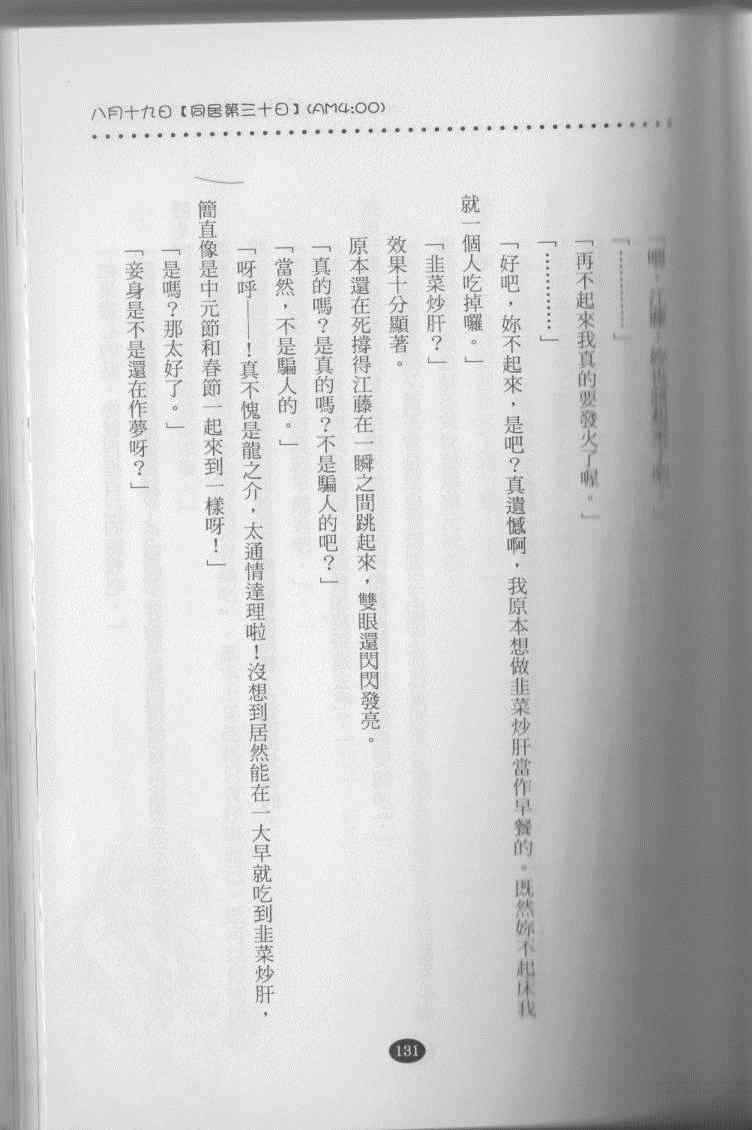 八月十九日【同居第三十日】(AM4:00)
「…………」
「再不起來我真的要發火了喔。」
「…………」
「好吧，妳不起來，是吧？真遺憾啊，我原本想做韭菜炒肝當作早餐的。既然妳不起床我
就一個人吃掉囉。」
「韭菜炒肝？」
效果十分顯著。
原本還在死撐得江藤在一瞬之間跳起來，雙眼還閃閃發亮。
「真的嗎？是真的嗎？不是騙人的吧？」
「當然，不是騙人的。」
「呀呼——！真不愧是龍之介，太通情達理啦！沒想到居然能在一大早就吃到韭菜炒肝，
簡直像是中元節和春節一起來到一樣呀！」
「是嗎？那太好了。」
「妾身是不是還在作夢呀？」
131